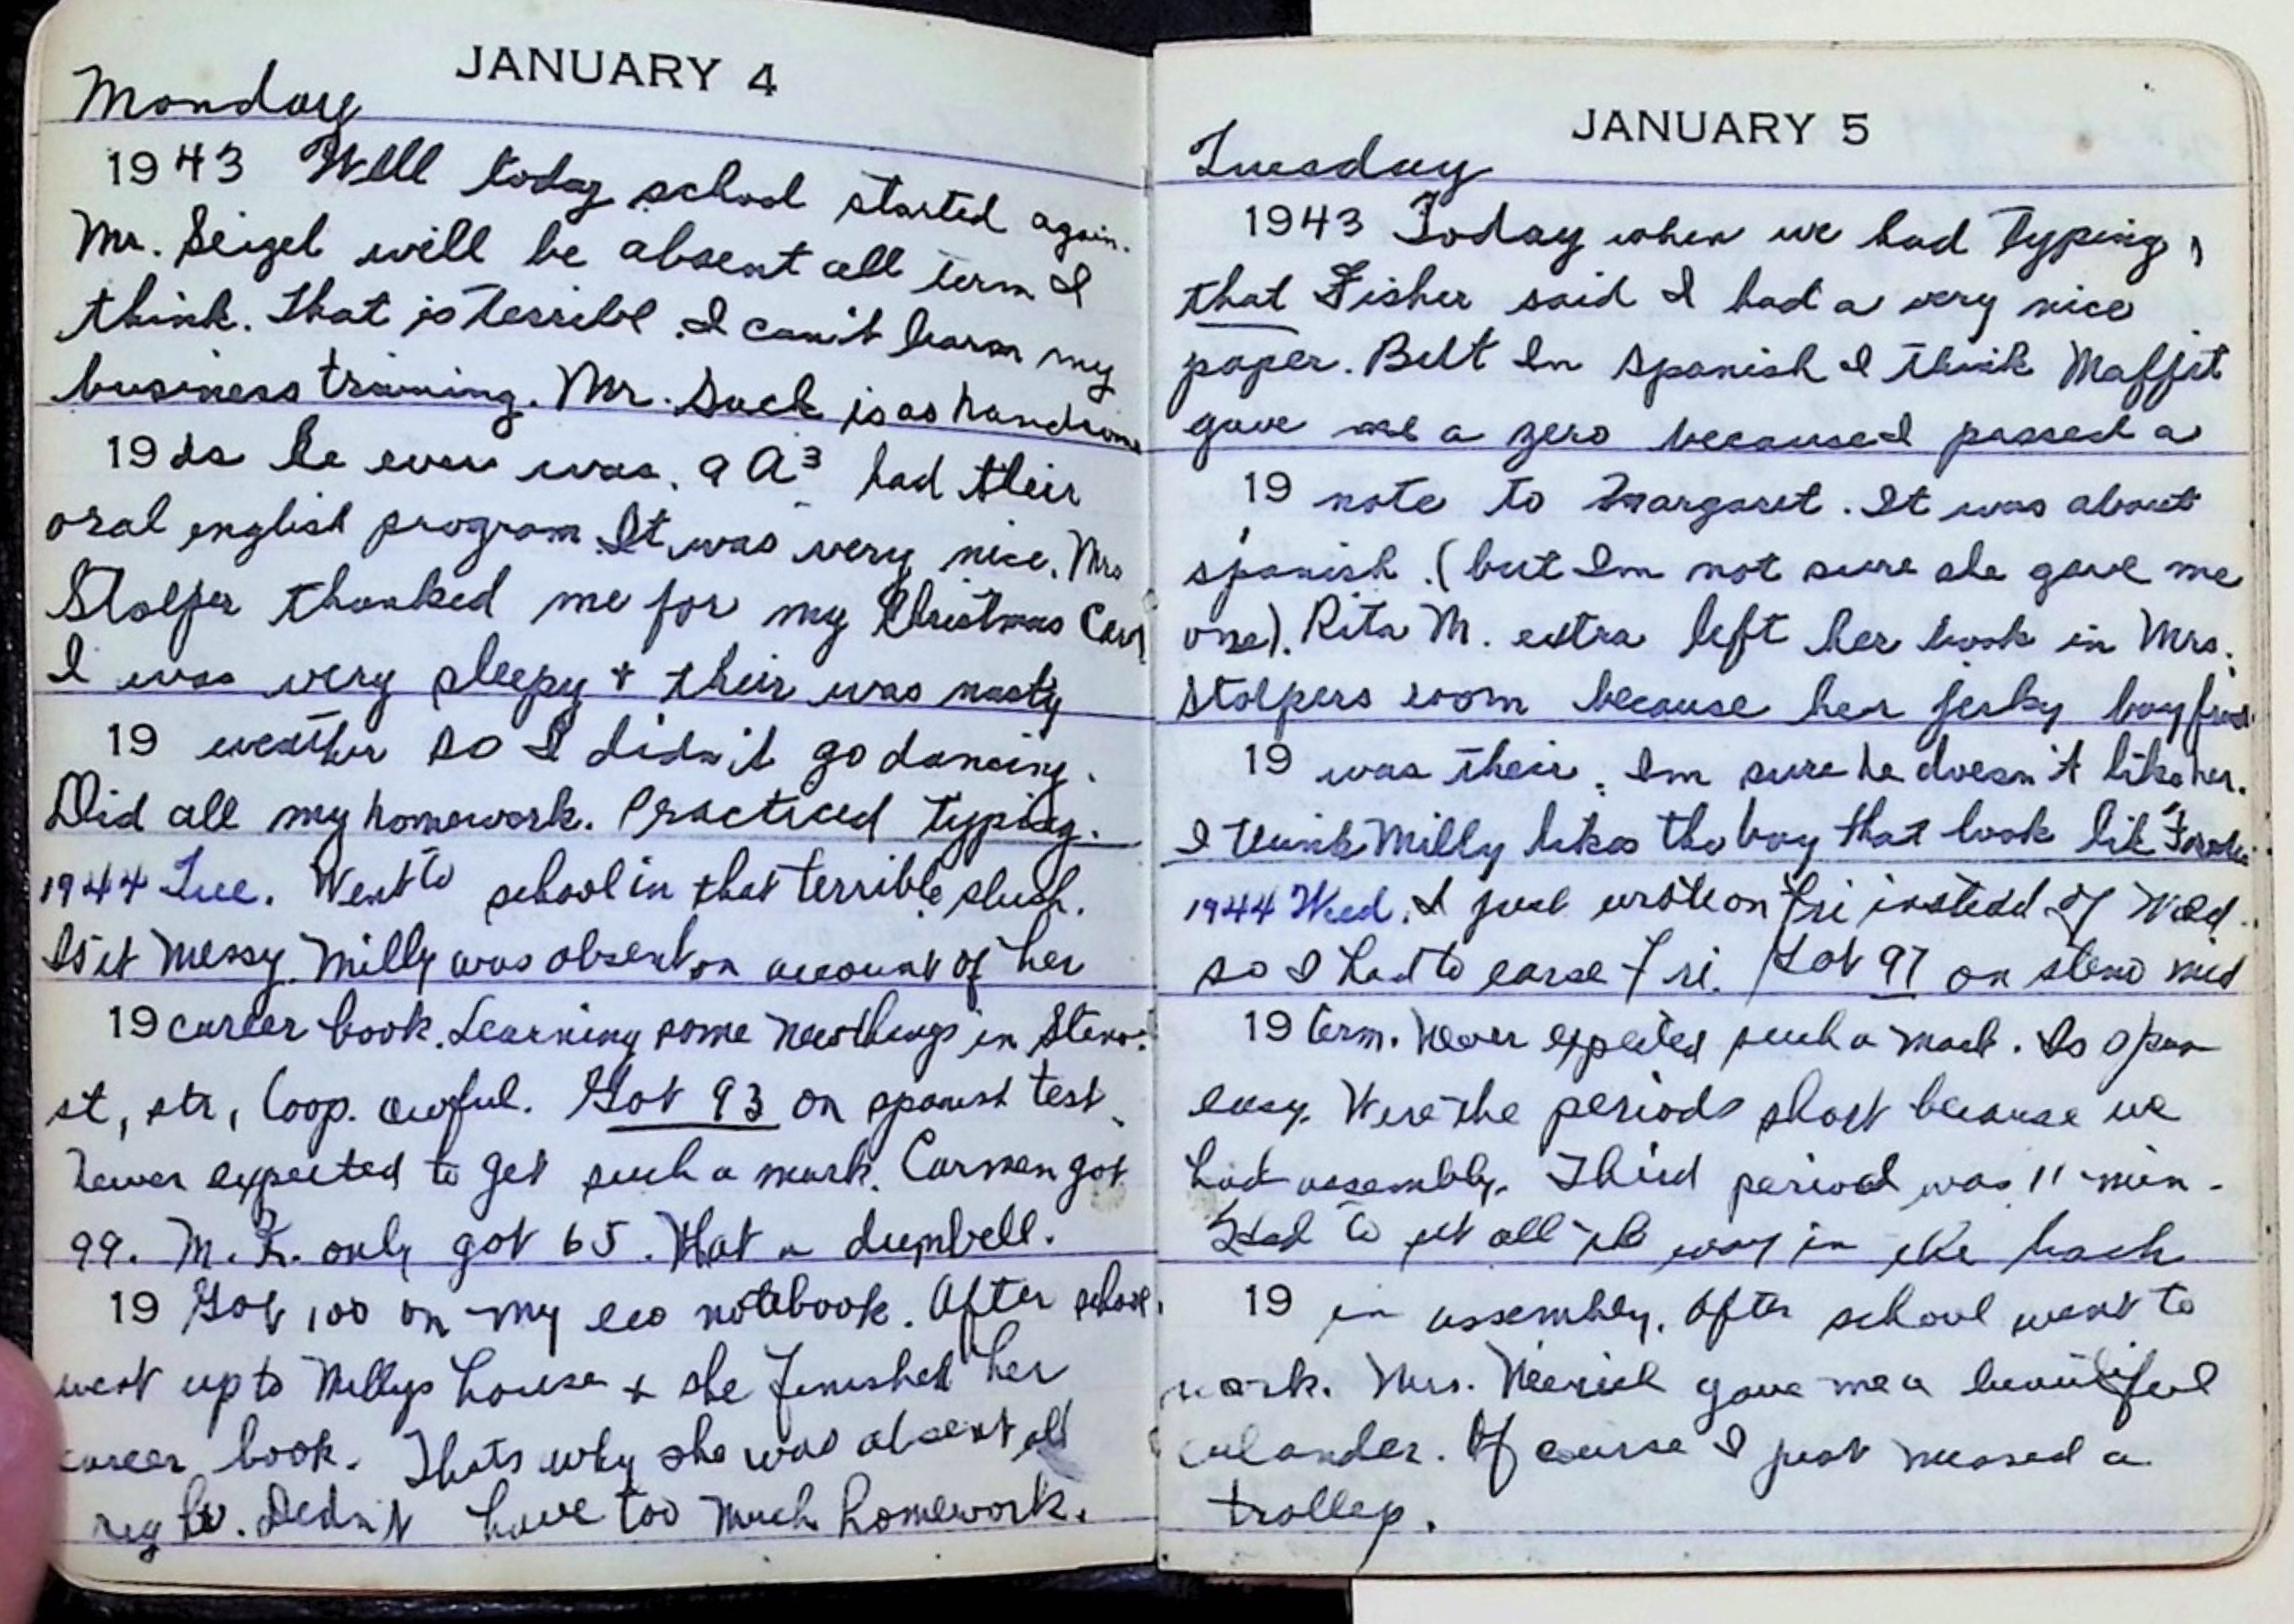 JANUARY 4
Monday
1943 Well today school started again.
Mr. Seigel will be absent all term I
think. That is terrible. I can't learn my
business training. Mr. Sack is as handsome
19 as he ever was. 9A³ had their
oral english program. It was very nice. Mrs
Stolper thanked me for my Christmas Card
I was very sleepy + their was nasty
19 weather so I didn't go dancing.
Did all my homework. Practiced typing.
1944 Tue. Went to school in that terrible slush.
Is it messy. Milly was absent on account of her
19 career book. Learning some new things in Steno.
st, str, loop. awful. Got 93 on spanish test.
Never expected to get such a mark. Carmen got
99. M. F. only got 65. What a dumbell.
19 Got 100 on my eco notebook. After school
went up to Millys house + she finished her
career book. Thats why she was absent all
Didn't have too much homework.
JANUARY 5
Tuesday
1943 Today when we had typing,
that Fisher said I had a very nice
paper. But In Spanish I think Maffit
gave me a zero because I passed a
19 note to Margaret. It was about
spanish. (but Im not sure she gave me
one). Rita M. extra left her book in Mrs.
Stolpers room because her jerky boyfriend
19 was their. Im sure he doesn't like her.
I think Milly likes the boy that look like
1944 Wed. I just wrote on Fri instead of Wed.
so I had to earse Fri. Got 97 on steno mid
19 term. Never expected such a mark. Is
easy. Were the periods short because we
had assembly. Third period was 11 min.
Had to sit all the way in the back
19 in assembly. After school went to
work. Mrs. gave me a beautiful
calander. Of course I just missed a
trolley.